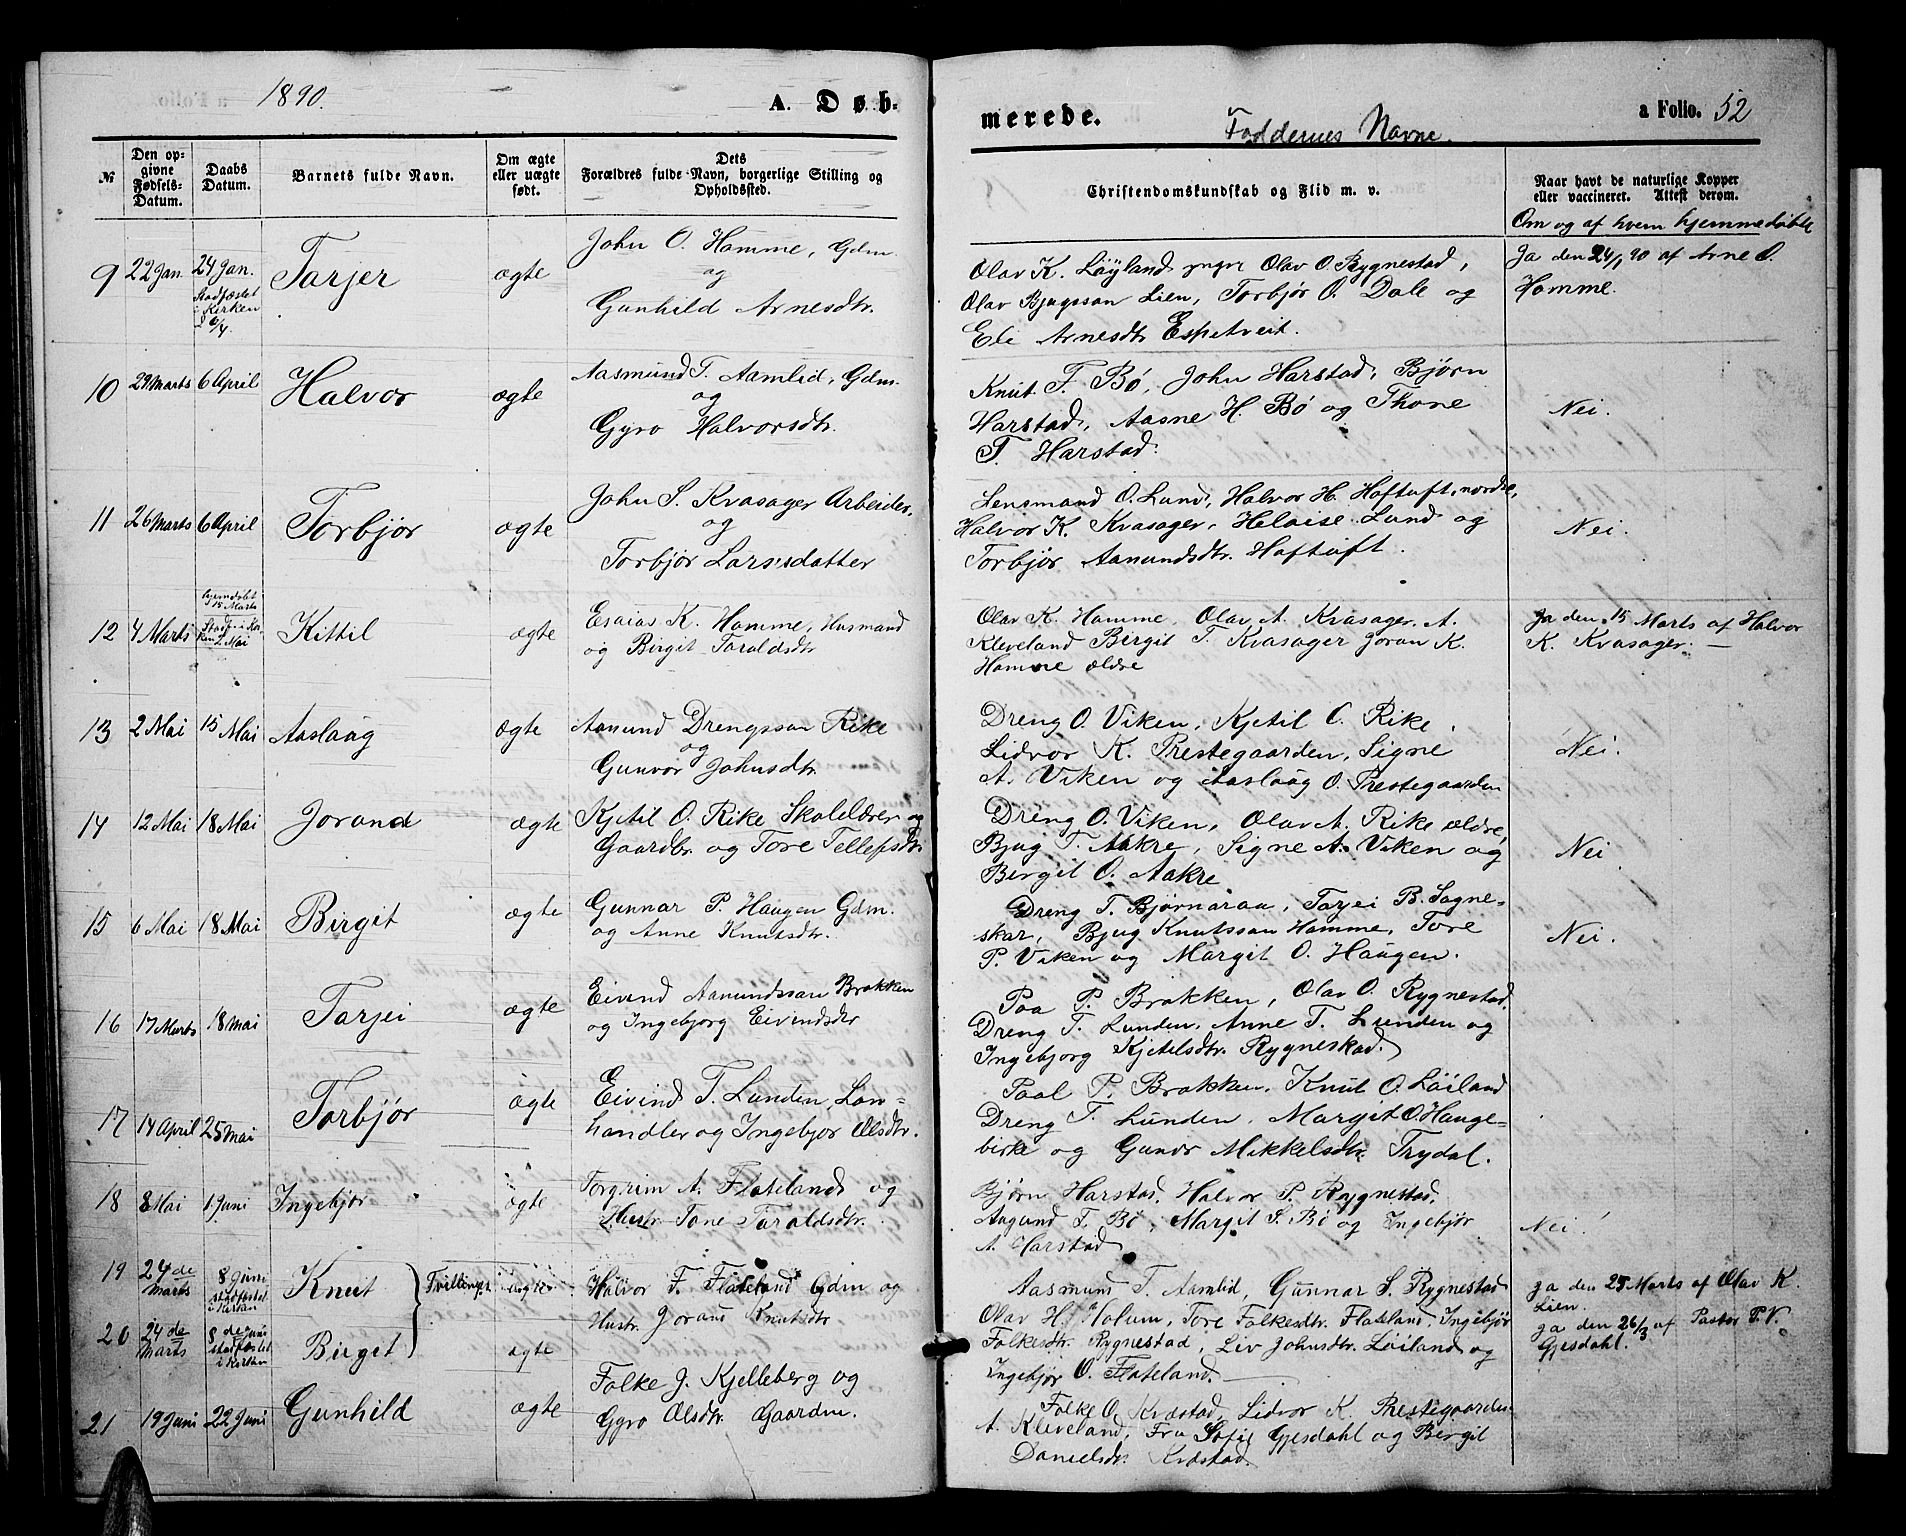 1890.
A. Døb-
merede.
Faddernes Navne.
a Folio. 52
№
Den op-
givne
Fødsels-
Datum.
Daabs
Datum.
Barnets fulde Navn.
Om ægte
eller uægte
født.
Dets
Forældres fulde Navn, borgerlige Stilling og
Opholdssted.
Christendomskundskab og Flid m. v.
Naar havt de naturlige Kopper
eller vaccineret. Attest derom.
Om og af hvem hjemmedøbt
9 22 Jan. 24 Jan. Tarjer ægte
Stadfæstet
i Kirken
6/4.
John O. Homme, Gdm.
og
Gunhild Arnesdtr.
Olav K. Løyland yngre Olav O. Rygnestad,
Olav Bjugsson Lien, Torbjør O. Dale og
Eli Arnesdtr Espetveit.
Ja den 24/1 90 af Arne O.
Homme.
10 29 Marts 6 April Halvor ægte
Aasmund T. Aamlid, Gdm.
og
Gyro Halvorsdtr.
Knut F. Bø, John Harstad, Bjørn
Harstad, Aasne H. Bø og Thone
T. Harstad.
Nei.
11 26 Marts 6 April Torbjør ægte
John S. Kvasager Arbeider,
og
Torbjør Larsdatter
Lensmand O. Lund, Halvor H. Hoftuft, nordre,
Halvor K. Kvasager, Heloise Lund og
Torbjør Aanundsdtr. Hoftuft.
Nei.
12 4 Marts Kittil ægte
hjemdøbt
15 Marts
2 Mai
Esaias K. Homme, Husmand
og Birgit Taraldsdtr
Olav K. Homme, Olav A. Kvasager, A.
Kleveland Birgit T. Kvasager Joran K.
Homme ældre
Ja den 15 Marts af Halvor
K. Kvasager. —
13 2 Mai 15 Mai Aaslaag ægte
Aanund Drengsson Rike
og
Gunvor Johnsdtr.
Dreng O. Viken, Kjetil O. Rike,
Lidvor K. Prestegaarden, Signe
A. Viken og Aaslaug O. Prestegaarden
Nei.
14 12 Mai 18 Mai Jorand ægte
Kjetil O. Rike Skolelærer og
Gaardbr. og Tore Tellefsdtr.
Dreng O. Viken, Olav A. Rike ældre,
Bjug T. Aakre, Signe A. Viken og
Birgit O. Aakre
Nei
15 6 Mai 18 Mai Birgit ægte
Gunnar P. Haugen Gdm.
og Anne Knutsdtr.
Dreng T. Bjørnaraa, Tarjei B. Sagne-
skar, Bjug Knutsson Homme, Tore
P. Viken og Margit O. Haugen.
Nei.
16 17 Marts 18 Mai Tarjei ægte
Eivind Aanundsson Brokken
og Ingebjorg Eivindsdtr
Paa P. Brokken, Olav O. Rygnestad,
Dreng T. Lunden, Anne T. Lunden og
Ingebjorg Kjetilsdtr. Rygnestad.
17 14 April 25 Mai Torbjør ægte
Eivind T. Lunden, Lan-
handler og Ingebjor Olsdtr.
Paal P. Brokken, Knut O. Løiland
Dreng T. Lunden, Margit O. Hauge-
birke og Gunvor Mikkelsdtr. Trydal.
18 8 Mai 1 Juni Ingebjør ægte
Torgrim A. Flateland og
Hustr Tone Taraldsdtr.
Bjørn Harstad, Halvor P. Rygnestad,
Augund F. Bø, Margit S. Bø og Ingebjør
A. Harstad
Nei!
19 24de Marts 8 Juni Knut Tvillinger ægte
stadfæstet
i Kirken
Halvor F. Flateland Gdm og
Hustr. Joraus Knutsdtr
20 24de Marts 8 de Juni Birgit ægte
stadfæstet
i Kirken
Aasmund T. Aamlid, Gunnar S. Rygnestad
Olav H. Holum, Tore Folkesdtr. Flateland, Ingebjør
Folkesdtr. Rygnestad, Liv Johnsdtr. Løiland og
Ingebjør O. Flateland.
Ja den 25 Marts af Olav K.
Lien.
ja den 26/3 af Pastor P. V.
Gjesdahl.
21 19 Juni 22 Juni Gunhild ægte
Folke J. Kjelleberg og
Gyro Olsdtr. Gaardm.
Folke O. Kvæstad, Lidvor K. Prestegaarden
A. Kleveland, Fru Sofie Gjesdahl og Birgit
Danielsdtr. Kvæstad.